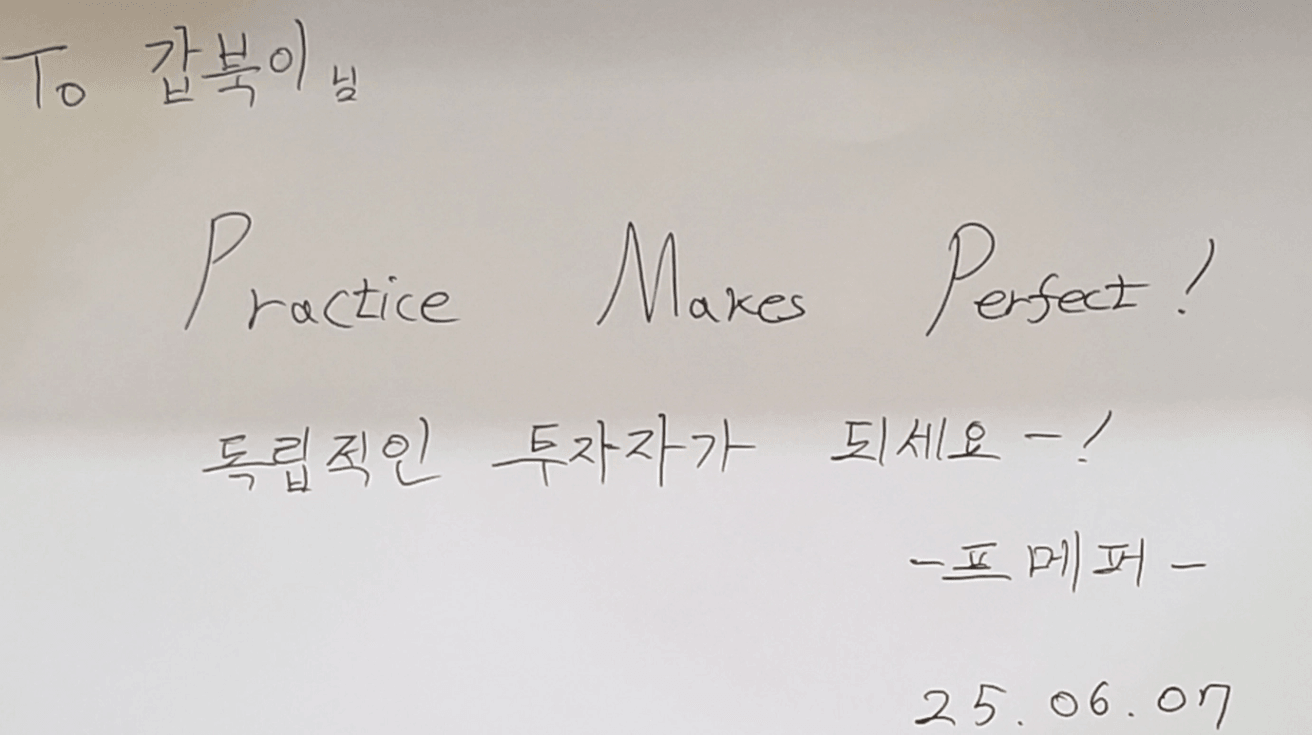 To 갑북이님
Practice Makes Perfect!
독립적인 투자자가 되세요-!
-프메퍼-
25.06.07